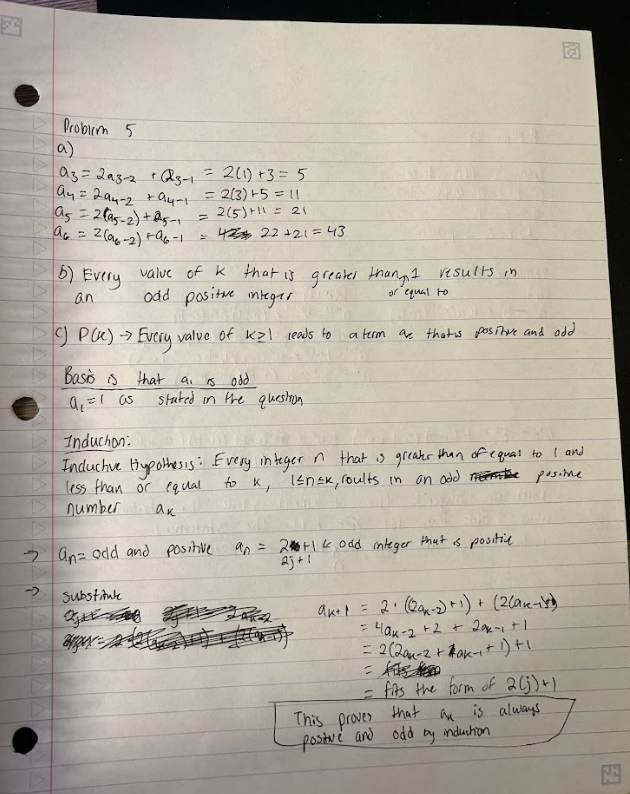 Problem 5
a)
a₃ = 2a₃₋₂ + a₃₋₁ = 2(1) + 3 = 5
a₄ = 2a₄₋₂ + a₄₋₁ = 2(3) + 5 = 11
a₅ = 2(a₅₋₂) + a₅₋₁ = 2(5) + 11 = 21
a₆ = 2(a₆₋₂) + a₆₋₁ = 22 + 21 = 43
b) Every value of k that is greater than 1 results in
or equal to
an odd positive integer
c) P(k) → Every value of k≥1 leads to a term aₖ that is positive and odd
Basis is that a₁ is odd
a₁ = 1 as stated in the question
Induction:
Inductive Hypothesis: Every integer n that is greater than of equal to 1 and
less than or equal to k, 1≤n≤k, results in an odd positive
number aₖ
→ aₙ = odd and positive aₙ = 2k+1 ← odd integer that is positive
2j+1
→ Substitute
aₖ₊₁ = 2·((2aₖ₋₂)+1) + (2(aₖ₋₁)+1)
= 4aₖ₋₂ + 2 + 2aₖ₋₁ + 1
= 2(2aₖ₋₂ + aₖ₋₁ + 1) + 1
= fits the form of 2(j)+1
This proves that aₖ is always
positive and odd by induction